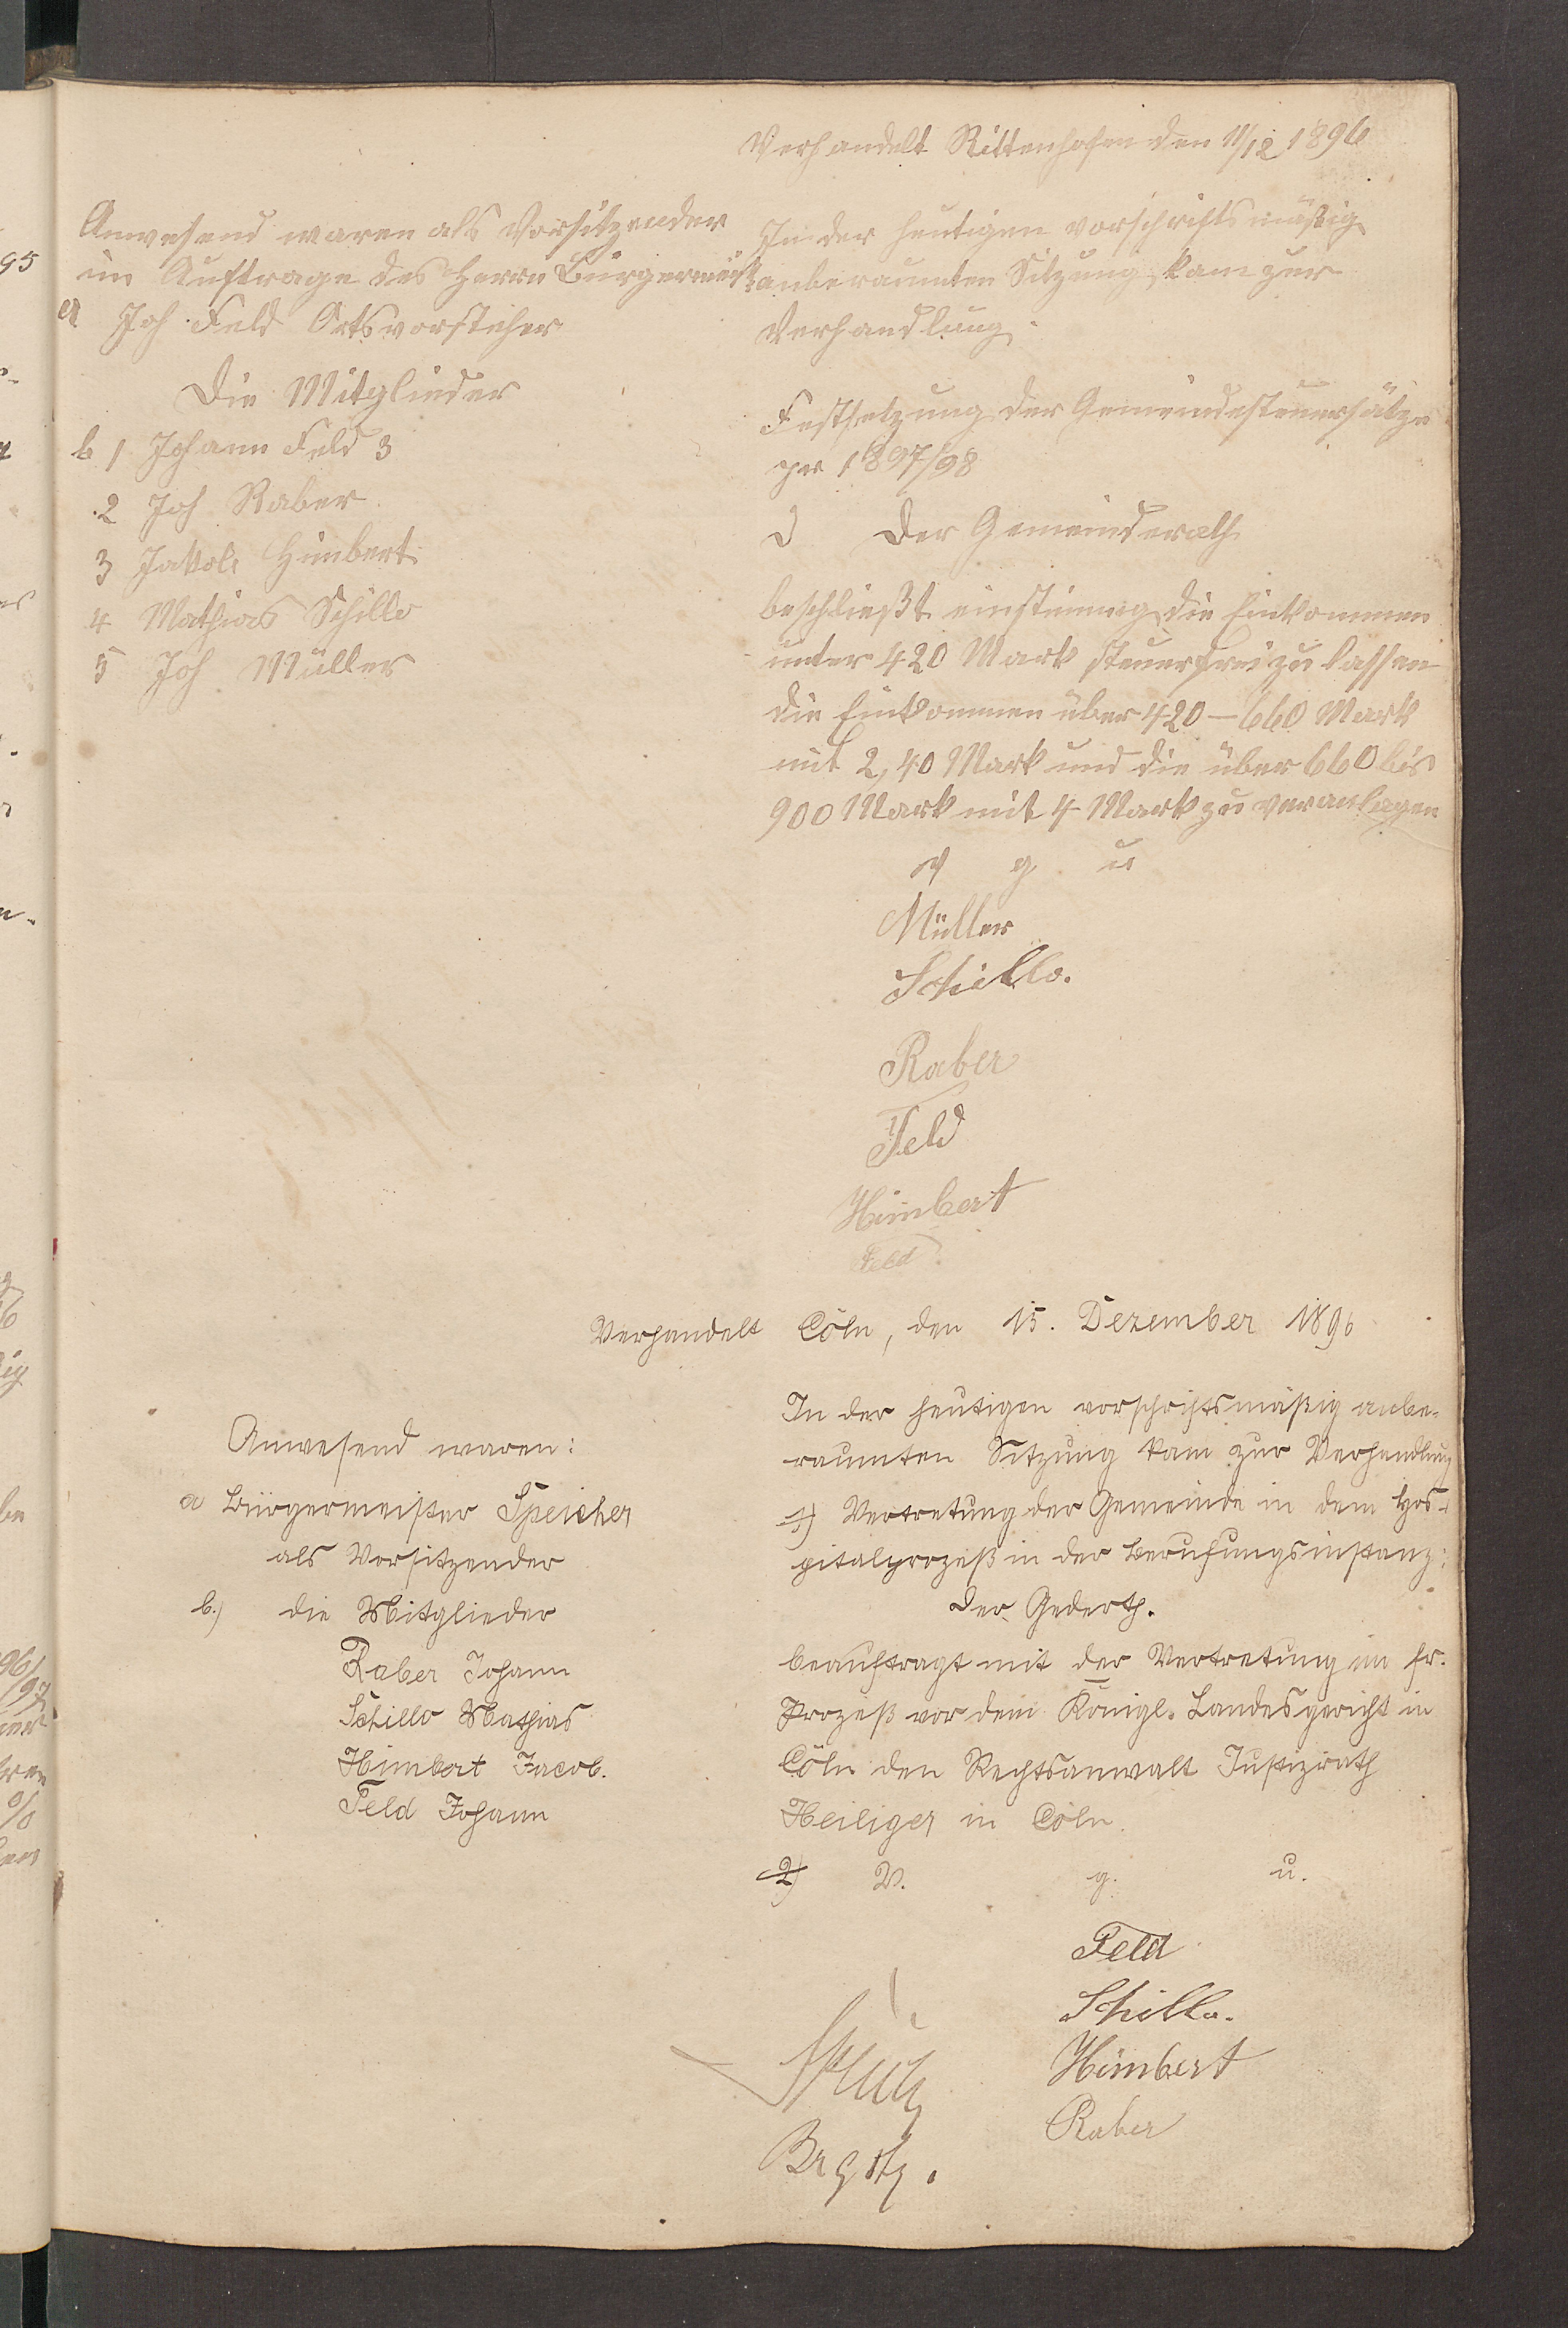 Verhandelt Rittenhofen den 11/12 1896
Anwesend waren als Vorsitzender
im Auftrage des Herrn Bürgermeist
a Joh Feld Ortsvorsteher
Die Mitglieder
b 1 Johann Feld 3
2 Joh Raber
3 Jakob Himbert
4 Mathias Schillo
5 Joh Müller
In der heutigen vorschriftsmäßig
anberaumten Sitzung kam zur
Verhandlung.
Festsetzung der Gemeindesteuersätze
pr 1897/98
Der Gemeinderath
beschließt einstimmig die Einkommen
unter 420 Mark steuerfrei zu lassen
die Einkommen über 420 – 660 Mark
mit 2,40 Mark und die über 660 bis
900 Mark mit 4 Mark zu veranlagen
v g u
Müller
Schillo.
Raber
Feld
Himbert
Feld
Verhandelt Cöln, den 15. Dezember 1896
Anwesend waren:
a Bürgermeister Speicher
als Vorsitzender
b.) die Mitglieder
Raber Johann
Schillo Mathias
Himbert Jacob.
Feld Johann
In der heutigen vorschriftsmäßig anbe-
raumten Sitzung kam zur Verhandlung
1) Vertretung der Gemeinde in dem Hos-
pitalprozeß in der Berufungsinstanz:
Der Gederth.
beauftragt mit der Vertretung im fr.
Prozeß vor dem Königl. Landesgericht in
Cöln den Rechtsanwalt Justizrath
Heiliger in Cöln.
2) V. g. u.
Feld
Schillo.
Himbert
Raber